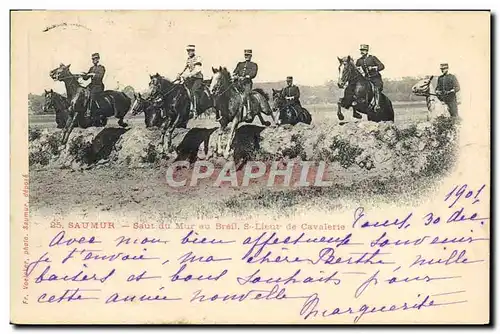 25. SAUMUR — Saut du Mur au Breil, S-Lieut de Cavalerie
CPARAMA.COM
Fr. Voelcker, photo. Saumur déposé
1901
30 déc.
Avec mon bien affectueux souvenir
je t'envoie, ma chère Berthe, mille
baisers et bons souhaits pour
cette année nouvelle
Marguerite